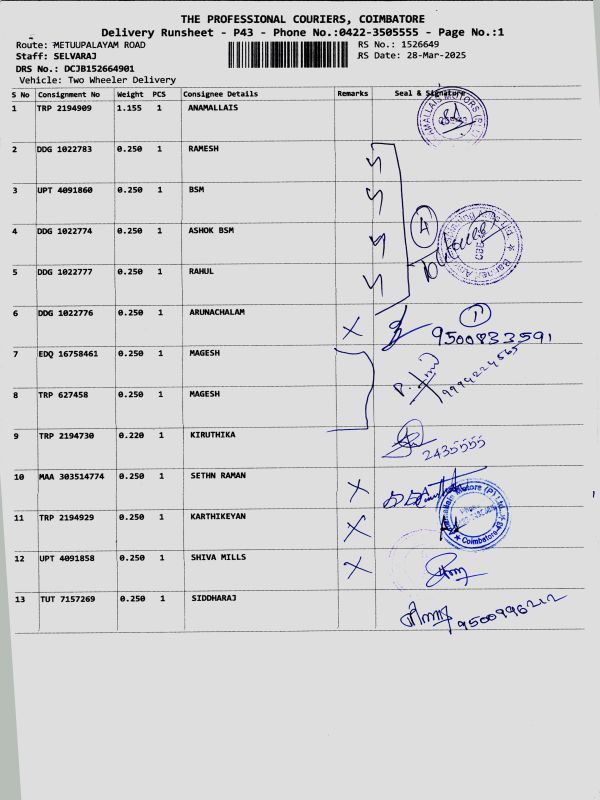 THE PROFESSIONAL COURIERS, COIMBATORE
Delivery Runsheet - P43 - Phone No.:0422-3505555 - Page No.:1
Route: METUUPALAYAM ROAD RS No.: 1526649
Staff: SELVARAJ RS Date: 28-Mar-2025
DRS No.: DCJB152664901
Vehicle: Two Wheeler Delivery
S No Consignment No Weight PCS Consignee Details Remarks Seal & Signature
1 TRP 2194909 1.155 1 ANAMALLAIS
2 DDG 1022783 0.250 1 RAMESH
3 UPT 4091860 0.250 1 BSM
4 DDG 1022774 0.250 1 ASHOK BSM 4
5 DDG 1022777 0.250 1 RAHUL
6 DDG 1022776 0.250 1 ARUNACHALAM 1
9500833591
7 EDQ 16758461 0.250 1 MAGESH
8 TRP 627458 0.250 1 MAGESH 9994224565
9 TRP 2194730 0.220 1 KIRUTHIKA 2435555
10 MAA 303514774 0.250 1 SETHN RAMAN
11 TRP 2194929 0.250 1 KARTHIKEYAN Coimbatore-43
12 UPT 4091858 0.250 1 SHIVA MILLS
13 TUT 7157269 0.250 1 SIDDHARAJ 9500996212